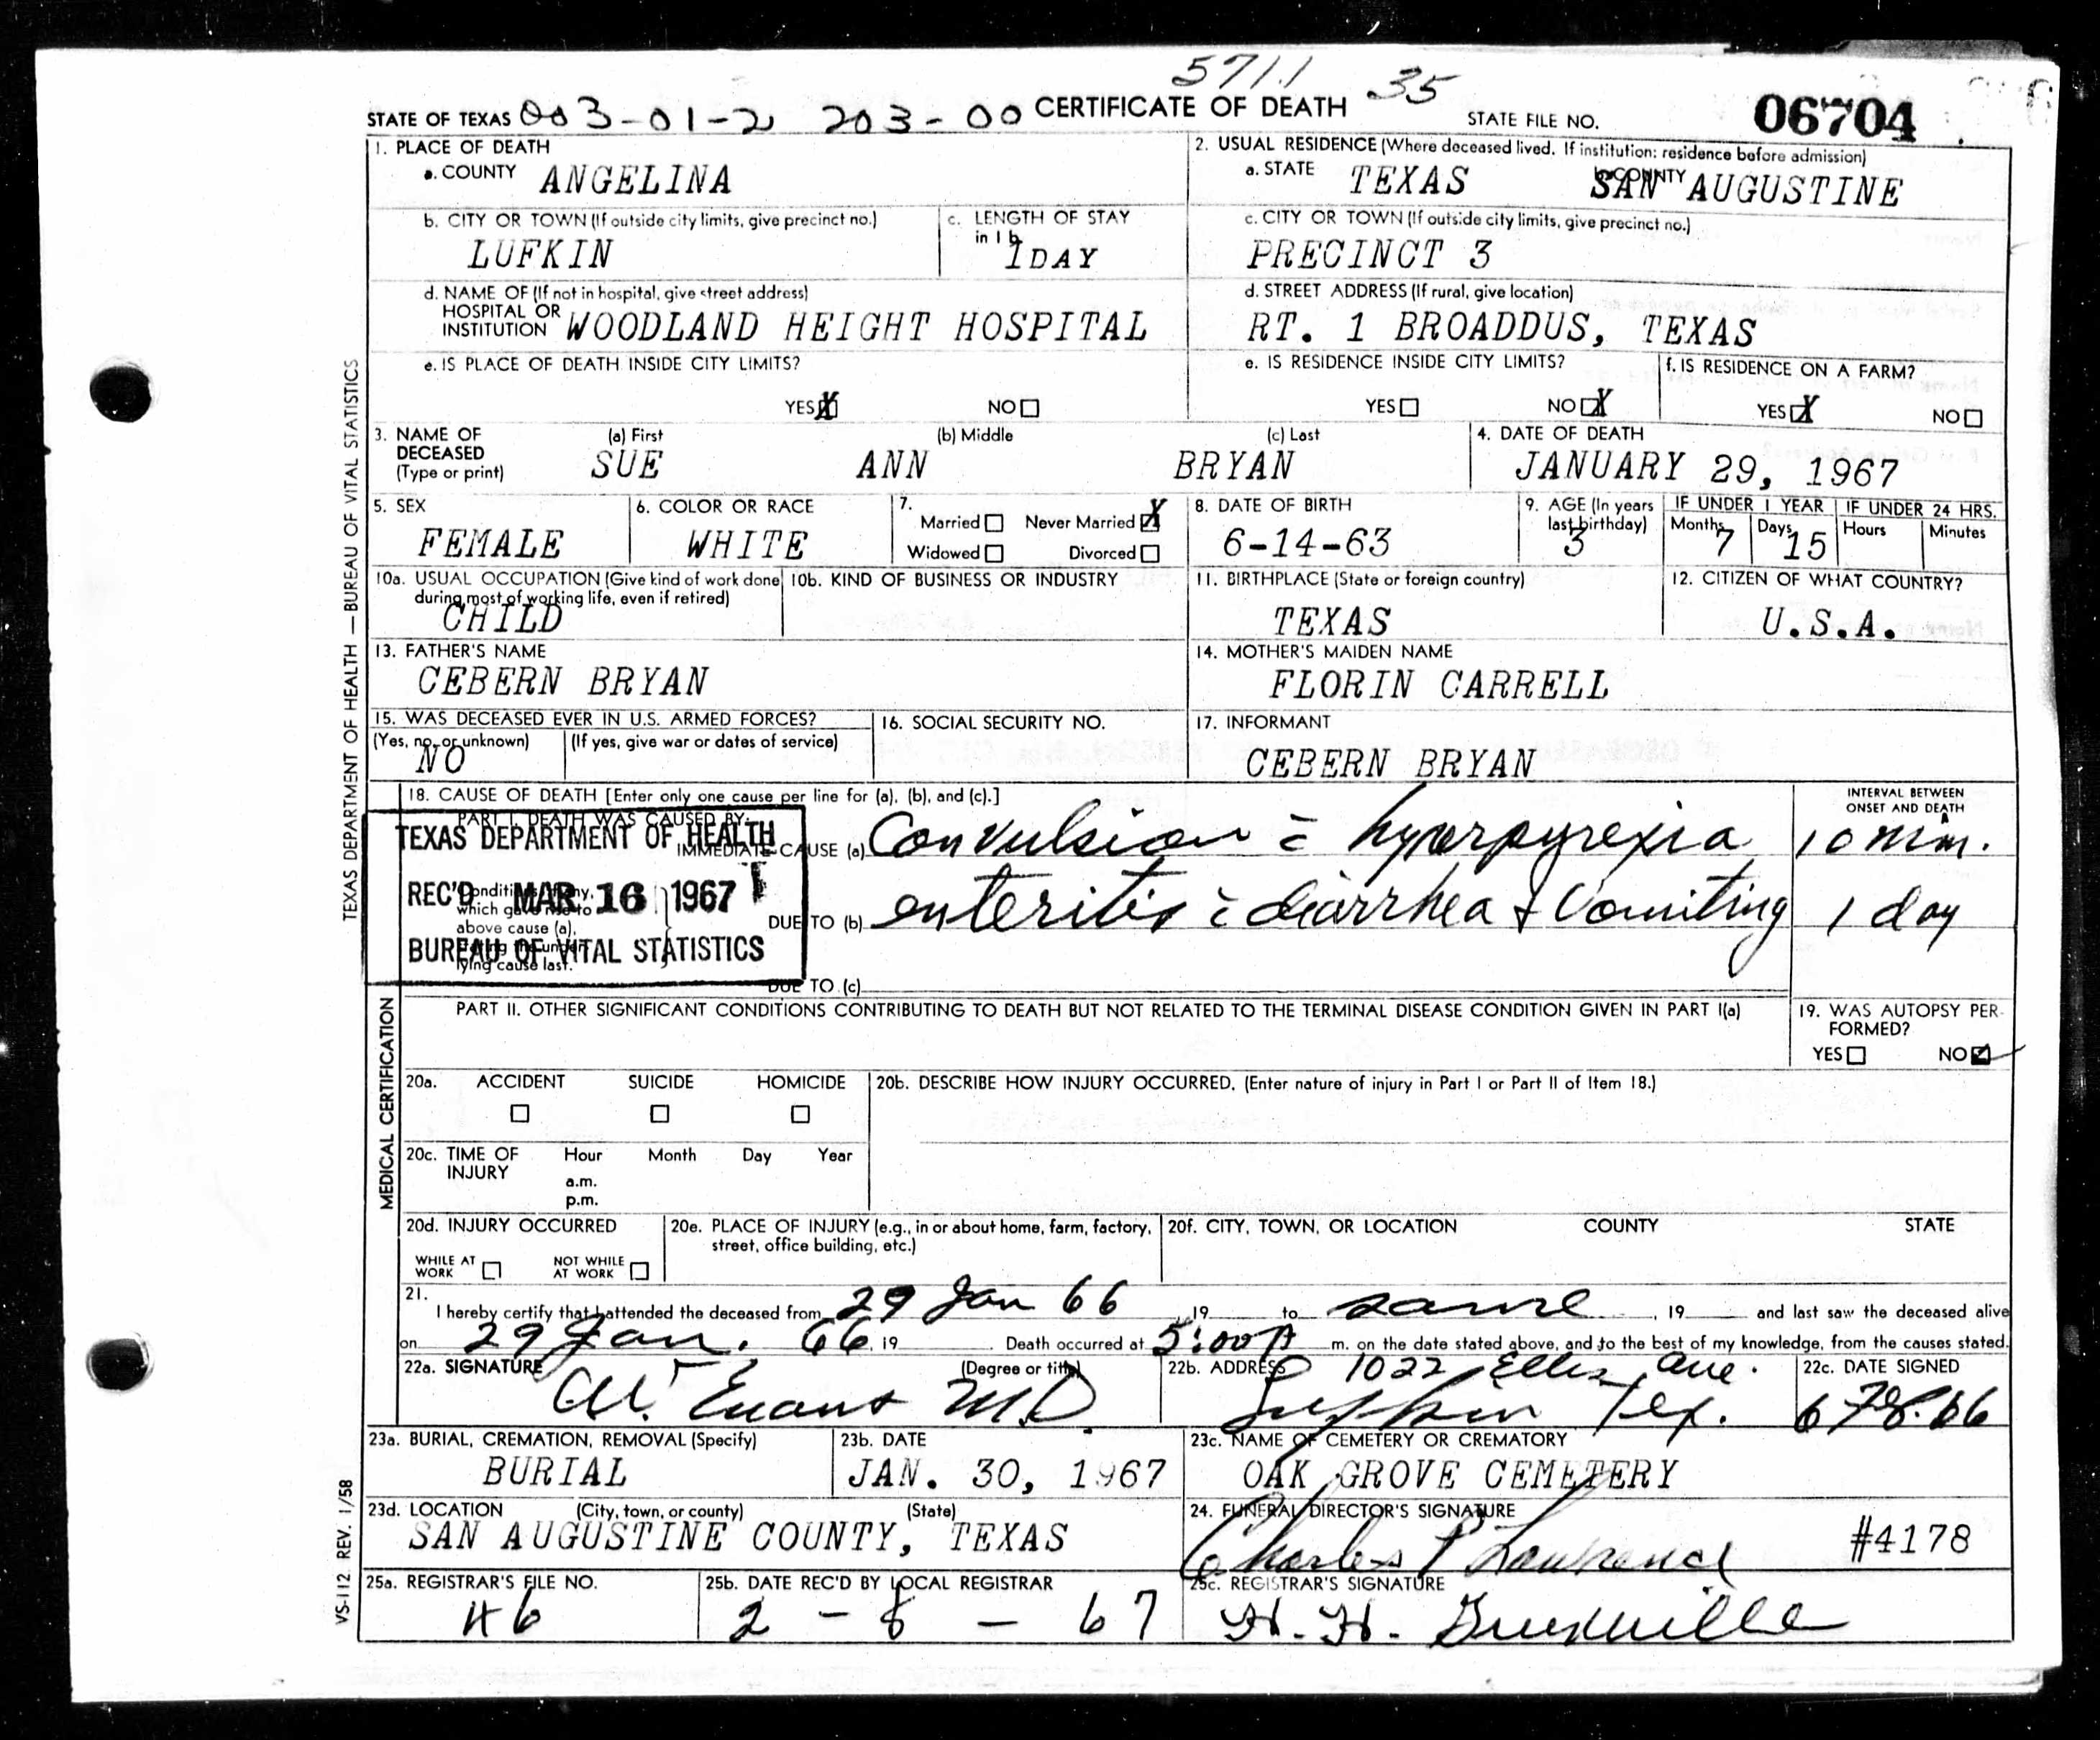 5711 35
STATE OF TEXAS 003-01-2 203-00 CERTIFICATE OF DEATH STATE FILE NO. 06704
1. PLACE OF DEATH
a. COUNTY ANGELINA
2. USUAL RESIDENCE (Where deceased lived. If institution: residence before admission)
a. STATE TEXAS b. COUNTY SAN AUGUSTINE
b. CITY OR TOWN (If outside city limits, give precinct no.)
LUFKIN
c. LENGTH OF STAY
in 1b
1DAY
c. CITY OR TOWN (If outside city limits, give precinct no.)
PRECINCT 3
d. NAME OF (If not in hospital, give street address)
HOSPITAL OR
INSTITUTION WOODLAND HEIGHT HOSPITAL
d. STREET ADDRESS (If rural, give location)
RT. 1 BROADDUS, TEXAS
e. IS PLACE OF DEATH INSIDE CITY LIMITS?
YES X NO
e. IS RESIDENCE INSIDE CITY LIMITS?
YES NO X
f. IS RESIDENCE ON A FARM?
YES X NO
3. NAME OF
DECEASED
(Type or print)
(a) First (b) Middle (c) Last
SUE ANN BRYAN
4. DATE OF DEATH
JANUARY 29, 1967
5. SEX
FEMALE
6. COLOR OR RACE
WHITE
7.
Married Never Married X
Widowed Divorced
8. DATE OF BIRTH
6-14-63
9. AGE (In years
last birthday)
3
IF UNDER 1 YEAR
Months 7 Days 15
IF UNDER 24 HRS.
Hours Minutes
10a. USUAL OCCUPATION (Give kind of work done
during most of working life, even if retired)
CHILD
10b. KIND OF BUSINESS OR INDUSTRY
11. BIRTHPLACE (State or foreign country)
TEXAS
12. CITIZEN OF WHAT COUNTRY?
U.S.A.
13. FATHER'S NAME
CEBERN BRYAN
14. MOTHER'S MAIDEN NAME
FLORIN CARRELL
15. WAS DECEASED EVER IN U.S. ARMED FORCES?
(Yes, no, or unknown) (If yes, give war or dates of service)
NO
16. SOCIAL SECURITY NO.
17. INFORMANT
CEBERN BRYAN
18. CAUSE OF DEATH [Enter only one cause per line for (a), (b), and (c).]
INTERVAL BETWEEN
ONSET AND DEATH
PART I. DEATH WAS CAUSED BY:
IMMEDIATE CAUSE (a) Convulsion c̄ hyperpyrexia 10 min.
DUE TO (b) enteritis c̄ diarrhea & Vomiting 1 day
DUE TO (c)
Conditions, if any,
which gave rise to
above cause (a),
stating the under-
lying cause last.
TEXAS DEPARTMENT OF HEALTH
REC'D MAR 16 1967
BUREAU OF VITAL STATISTICS
PART II. OTHER SIGNIFICANT CONDITIONS CONTRIBUTING TO DEATH BUT NOT RELATED TO THE TERMINAL DISEASE CONDITION GIVEN IN PART I(a)
19. WAS AUTOPSY PER-
FORMED?
YES NO
20a. ACCIDENT SUICIDE HOMICIDE
20b. DESCRIBE HOW INJURY OCCURRED. (Enter nature of injury in Part I or Part II of Item 18.)
20c. TIME OF
INJURY
Hour Month Day Year
a.m.
p.m.
20d. INJURY OCCURRED
WHILE AT
WORK
NOT WHILE
AT WORK
20e. PLACE OF INJURY (e.g., in or about home, farm, factory,
street, office building, etc.)
20f. CITY, TOWN, OR LOCATION COUNTY STATE
21.
I hereby certify that I attended the deceased from 29 Jan 66, 19 to same, 19 and last saw the deceased alive
on 29 Jan. 66, 19 Death occurred at 5:00 A m. on the date stated above, and to the best of my knowledge, from the causes stated.
22a. SIGNATURE (Degree or title)
Evans M.D
22b. ADDRESS 1022 Ellis Ave.
Lufkin Tex.
22c. DATE SIGNED
23a. BURIAL, CREMATION, REMOVAL (Specify)
BURIAL
23b. DATE
JAN. 30, 1967
23c. NAME OF CEMETERY OR CREMATORY
OAK GROVE CEMETERY
23d. LOCATION (City, town, or county) (State)
SAN AUGUSTINE COUNTY, TEXAS
24. FUNERAL DIRECTOR'S SIGNATURE
Charles P Lawrence #4178
25a. REGISTRAR'S FILE NO.
46
25b. DATE REC'D BY LOCAL REGISTRAR
2 - 8 - 67
25c. REGISTRAR'S SIGNATURE
H. H.
TEXAS DEPARTMENT OF HEALTH — BUREAU OF VITAL STATISTICS
MEDICAL CERTIFICATION
VS-112 REV. 1/58